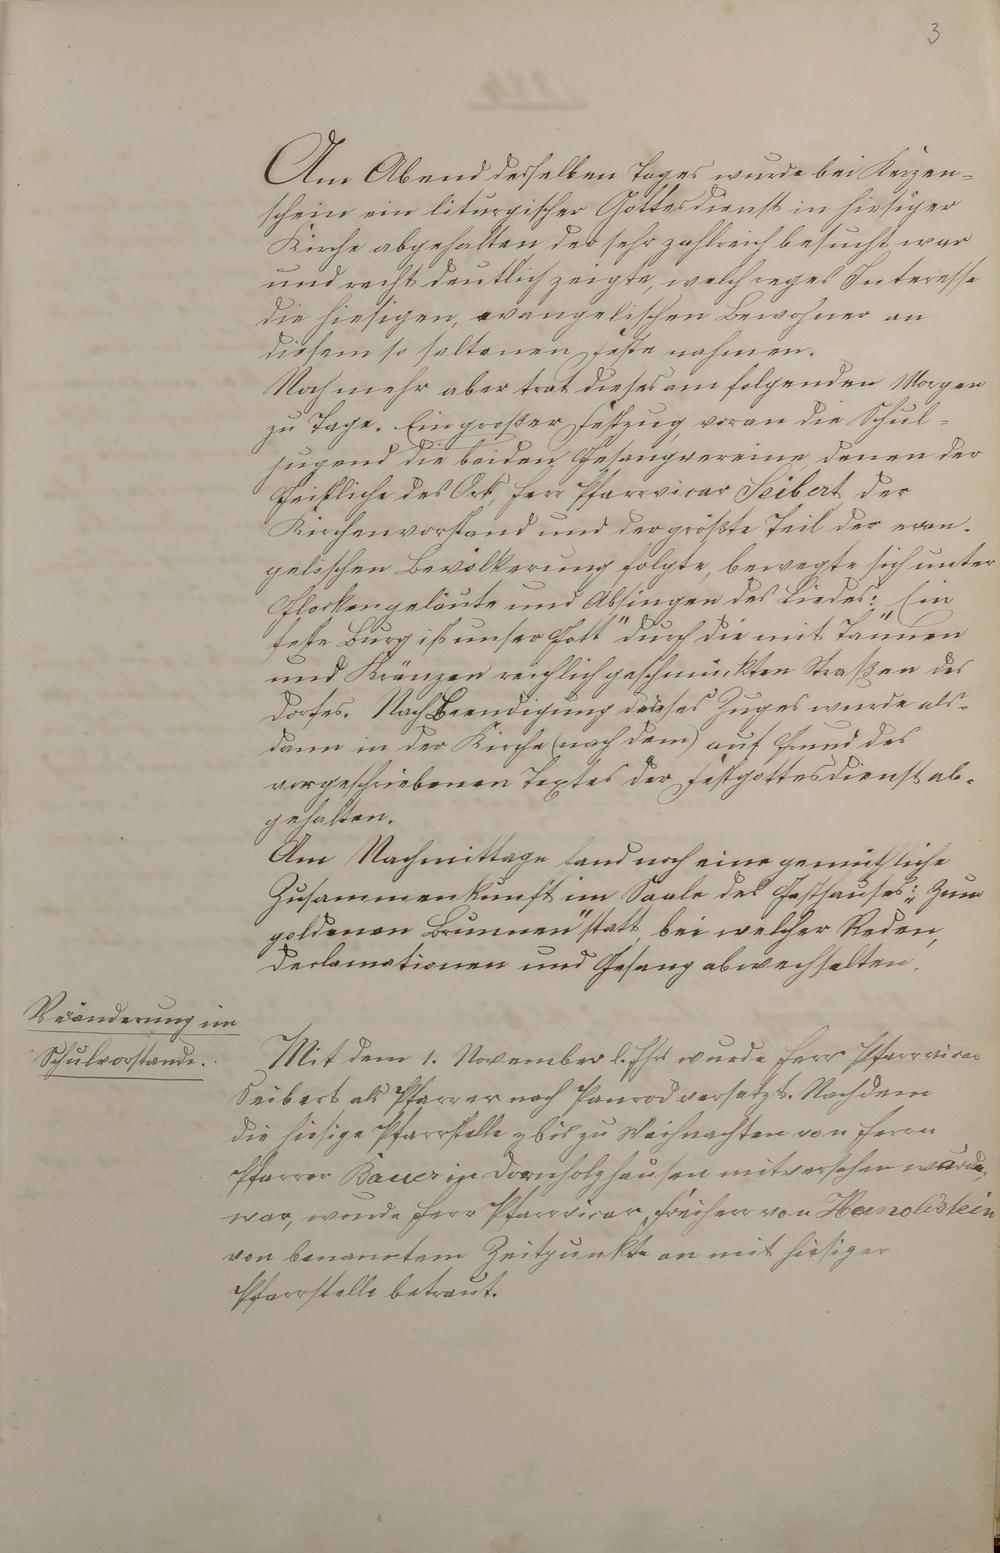 3
Am Abend desselben Tages wurde bei Kerzen-
schein ein liturgischer Gottesdienst in hiesiger
Kirche abgehalten, der sehr zahlreich besucht war
und recht deutlich zeigte, welch reges Interesse
die hiesigen, evangelischen Bewohner an
diesem so seltenen Feste nahmen.
Noch mehr aber trat dieses am folgenden Morgen
zu Tage. Ein großer Festzug, voran die Schul-
jugend die beiden Gesangvereine, denen der
Geistliche des Orts, Herr Pfarrvicar Seibert, der
Kirchenvorstand und der größte Teil der evan-
gelischen Bevölkerung folgte, bewegte sich unter
Glockengeläute und Absingen des Liedes: „Ein
feste Burg ist unser Gott" durch die mit Tannen
und Kränzen reichlich geschmückten Straßen des
Dorfes. Nach Beendigung dieses Zuges wurde als-
dann in der Kirche (nach dem) auf Grund des
vorgeschriebenen Textes der Festgottesdienst ab-
gehalten.
Am Nachmittage fand noch eine gemüthliche
Zusammenkunft im Saale des Gasthauses: „Zum
goldenen Brunnen" statt, bei welcher Reden,
Declamationen und Gesang abwechselten.
Veränderung im
Schulvorstande.
Mit dem 1. November l. Jhs wurde Herr Pfarrvicar
Seibert als Pfarrer nach Panrod versetzt. Nachdem
die hiesige Pfarrstelle bis zu Weihnachten von Herrn
Pfarrer Bauer in Dornholzhausen mitversehen wurde,
war, wurde Herr Pfarrvicar, Freiherr von Hanolstein
von benanntem Zeitpunkte an mit hiesiger
Pfarrstelle betraut.